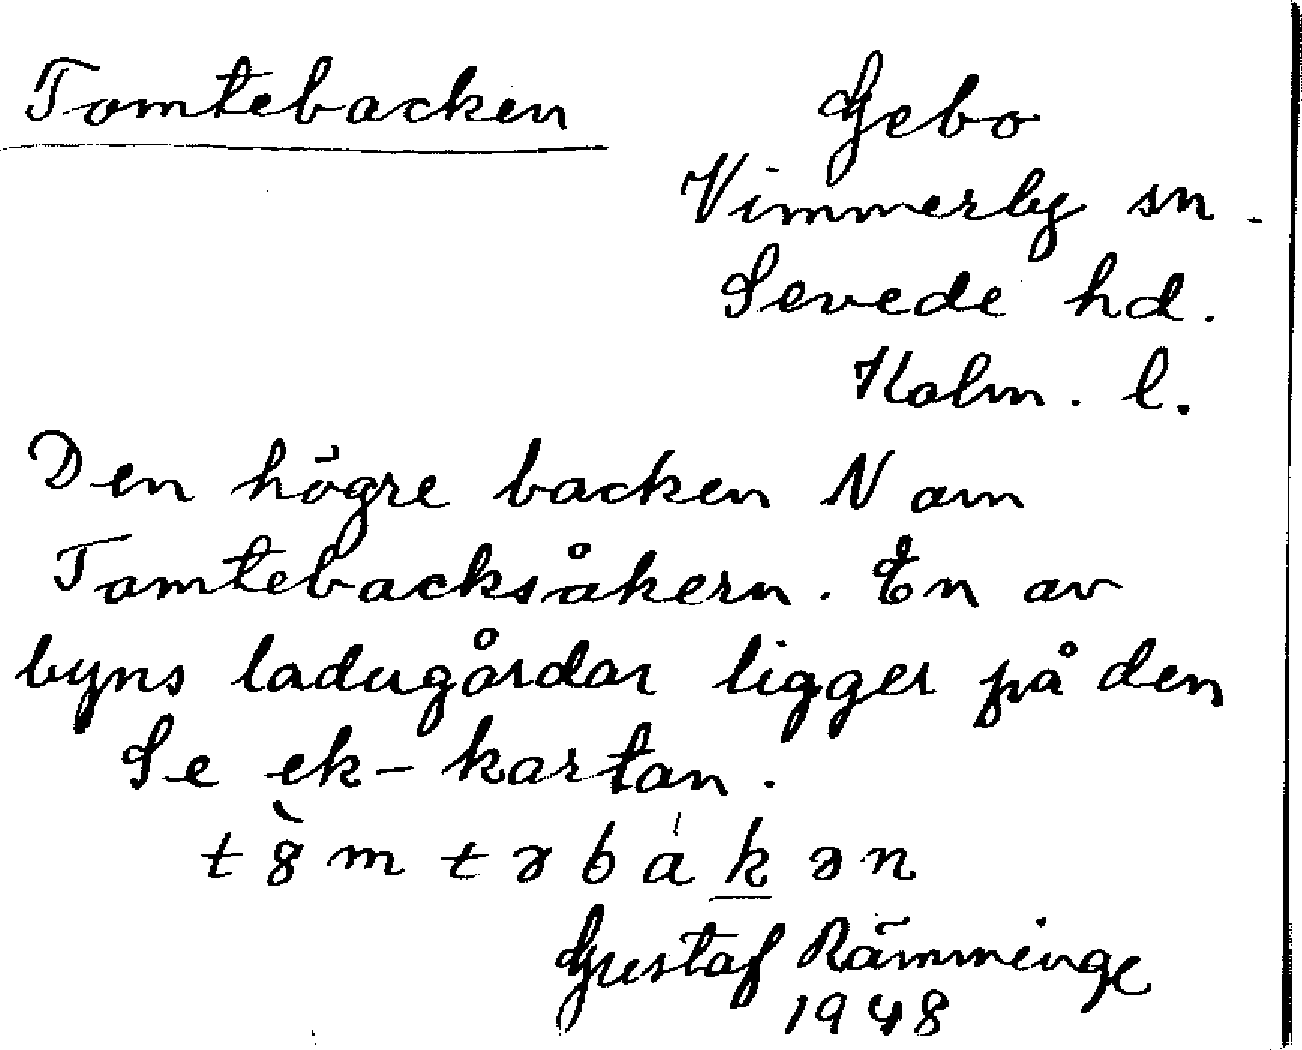 Tomtebacken
Gebo
Vimmerby sn.
Sevede hd.
Kalm. l.
Den högre backen N om
Tomtebacksåkern. En av
byns ladugårdar ligger på den
Se ek-kartan.
t8̀mtəbákən
Gustaf Rämminge
1948